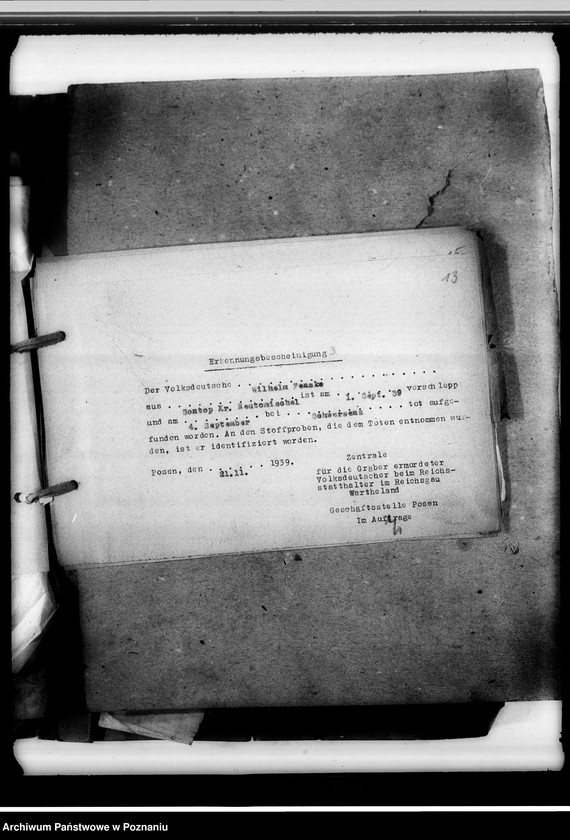 13
Erkennungsbescheinigung 3
Der Volksdeutsche . . Wilhelm Fenske . . . . . . . . . .
aus . . Sontop Kr. Neutomischel ist am . 1. Sept. 39 verschlepp
und am . 4. September . . bei . . Schwersenz . . . . tot aufge-
funden worden. An den Stoffproben, die dem Toten entnommen wur-
den, ist er identifiziert worden.
Posen, den . 21.11. . . 1939.
Zentrale
für die Gräber ermordeter
Volksdeutscher beim Reichs-
statthalter im Reichsgau
Wartheland
Geschäftsstelle Posen
Im Auftrage
Archiwum Państwowe w Poznaniu